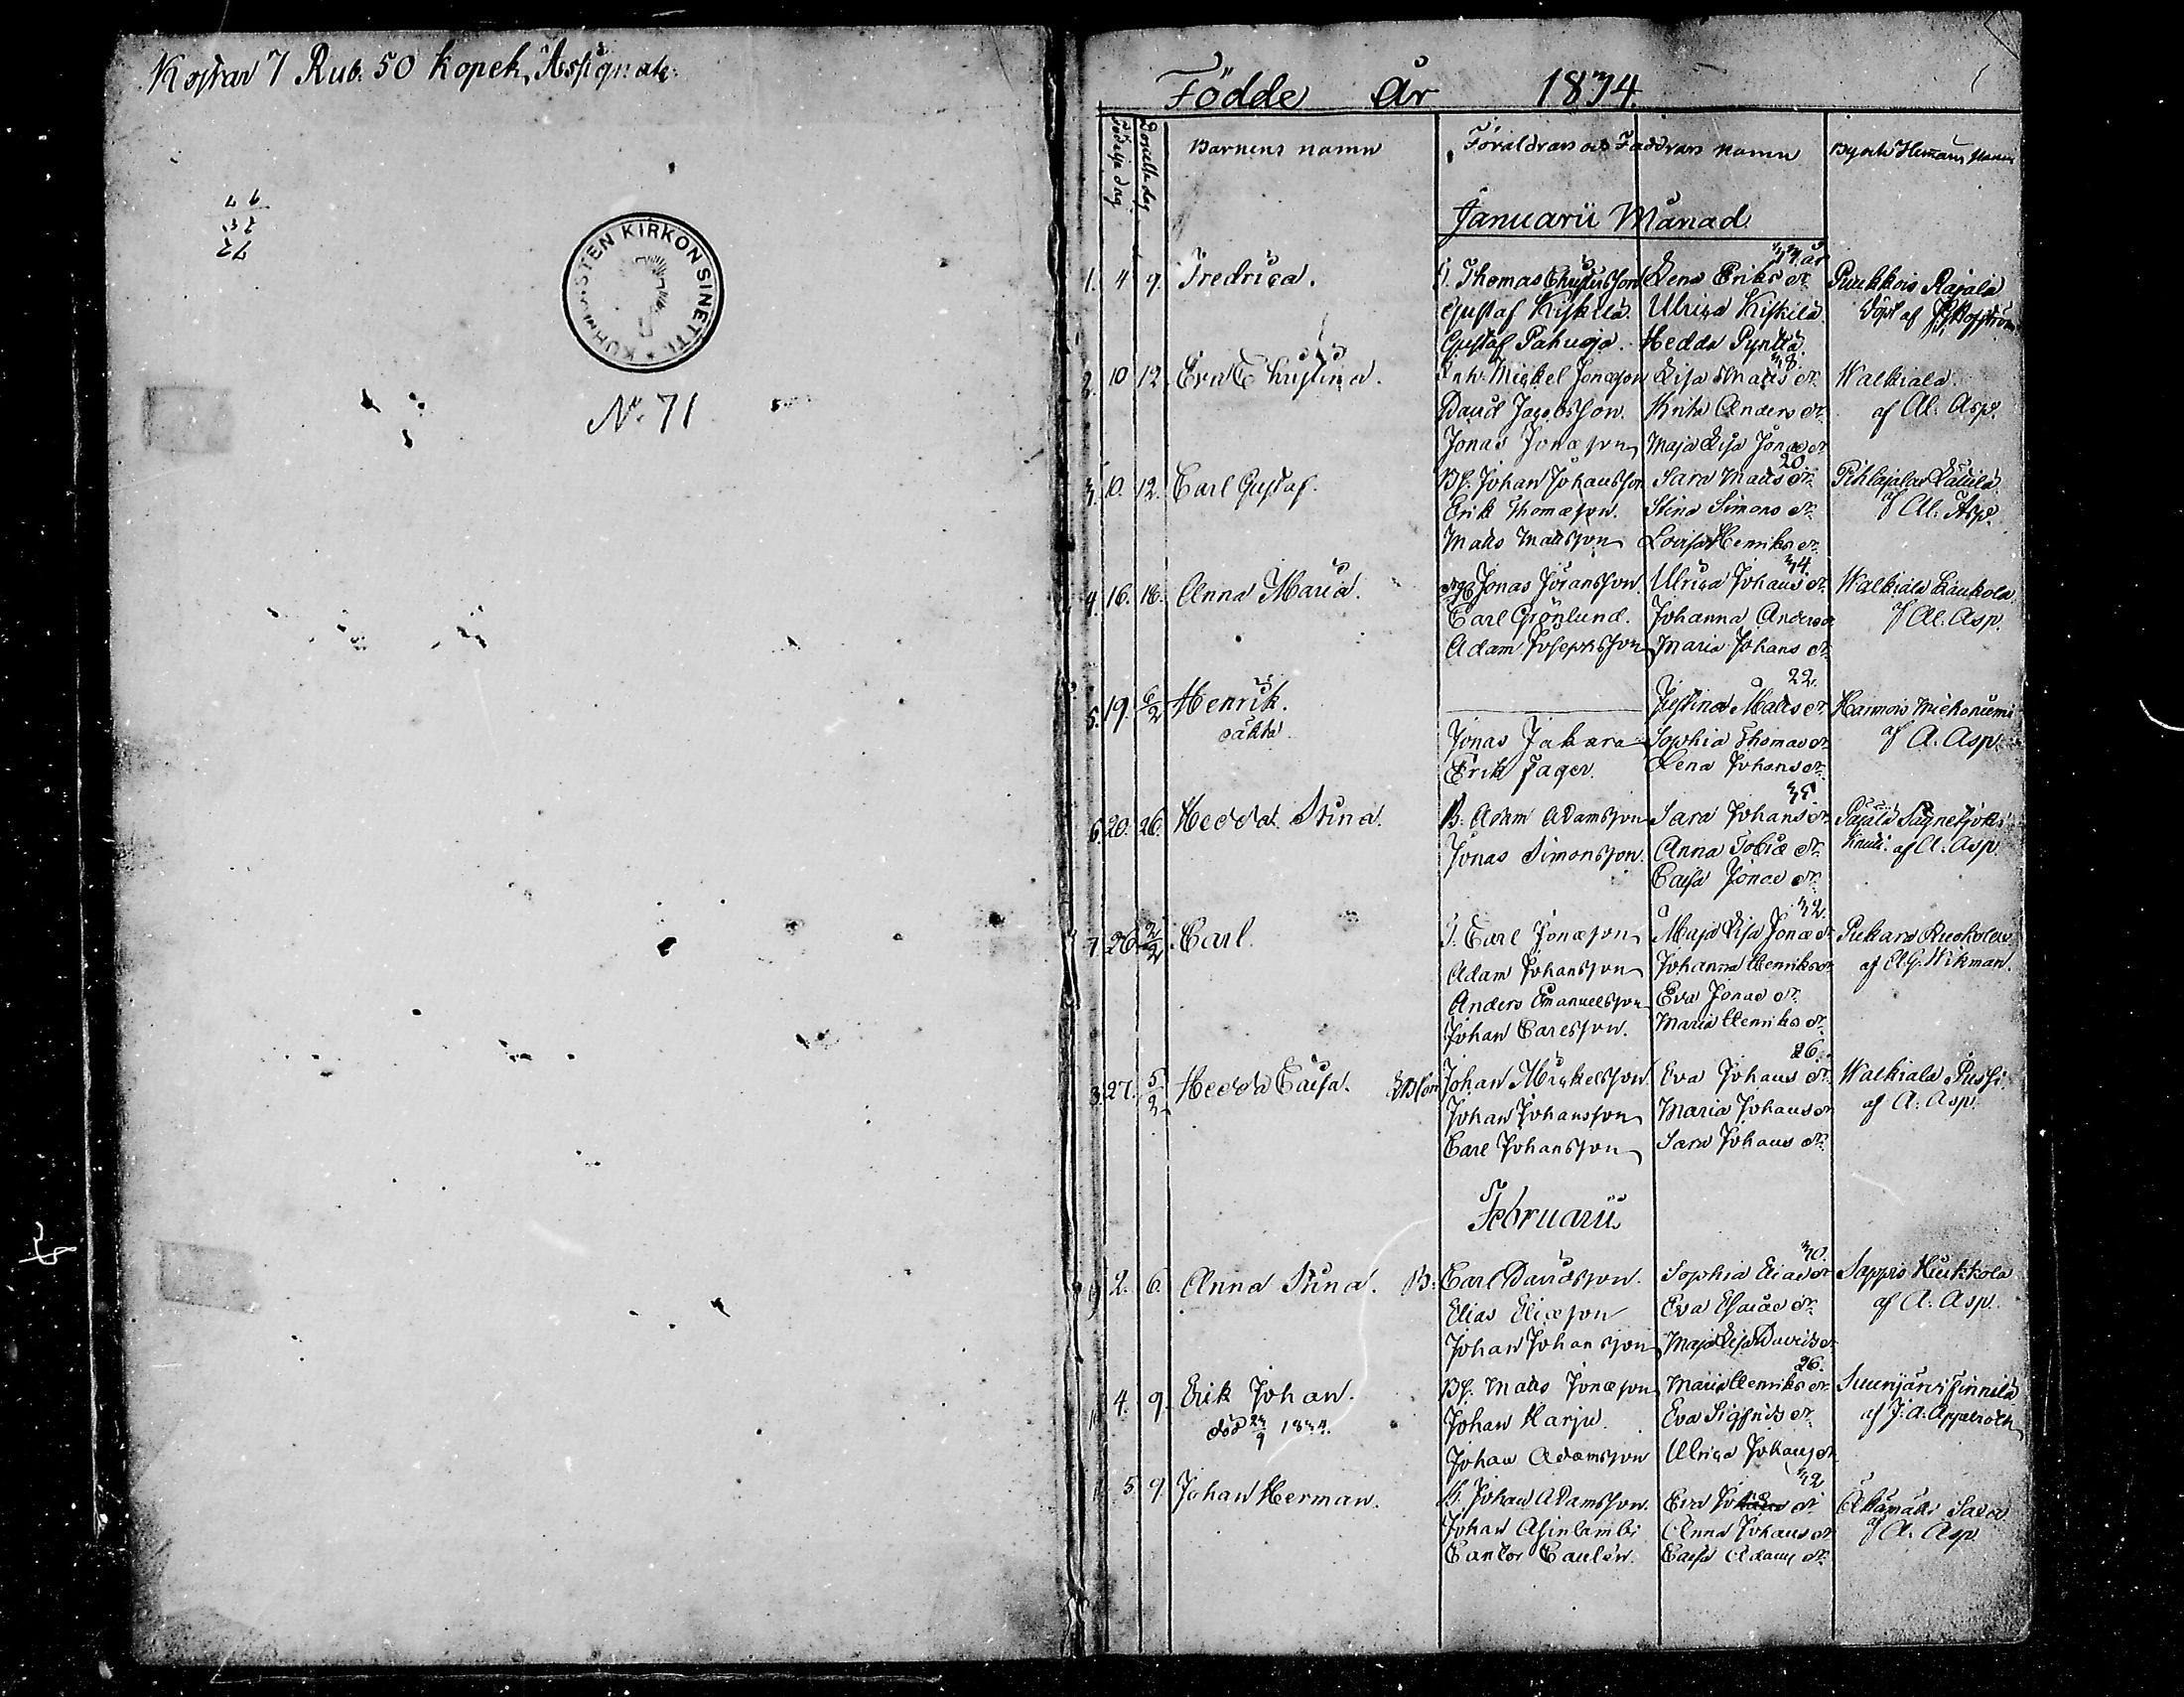 Kostar 7 Rub. 50 kopek, Assignat.
KUHMOISTEN KIRKON SINETTI
No 71
Födde År 1834
Födelse dag
Döpelse dag
Barnens namn
Föräldrars och Faddrars namn
Byars Hemans namn
Januarii Månad
33 år
1. 4 9. Fredrica. T. Thomas Christersson Lena Eriks dr Puukkois Rajala
Gustaf Kiskilä. Ulrica Kiskilä. döpt af
Gustaf Pahuoja. Hedda Pynttä.
38.
2. 10 12 Eva Christina. Inh. Mickel Jonæson Lisa Matts dr Walkiala
David Jacobsson. Krita Anders dr af Al. Asp.
Jonas Jonæson Maja Lisa Jonæ dr
20.
3. 10. 12. Carl Gustaf. Bs. Johan Johansson Sara Matts dr Pihlajala
Erik Thomæson. Stina Simons dr af Al. Asp.
Matts Mattsson Lovisa Henriks dr
34.
4. 16. 18. Anna Maria. Jonas Jöransson. Ulrica Johans dr Walkiala Laukola
Carl Grönlund. Johanna Anders dr af Al. Asp.
Adam Josephsson Maria Johans dr
22.
5. 19. 6/2 Henrik. Justina Matts dr Harmois Miekoniemi
oäkta. Jonas Jakara Sophia Thomas dr af A. Asp.
Erik Jager. Lena Johans dr
35
6. 20. 26. Hedda Stina. B. Adam Adamsson Sara Johans dr Päjälä
Jonas Simonsson. Anna Tobiæ dr af A. Asp.
Caisa Jonæ dr
32.
7. 26 2/2 Carl. T. Carl Jonæson Maja Lisa Jonæ dr Pukara Ruokola
Adam Johansson Johanna Henriks dr af A G. Wikman.
Anders Emanuelsson Eva Jonæ dr
Johan Carlsson. Maria Henriks dr
26.
8. 27. 5/2 Hedda Caisa. Johan Mickelsson. Eva Johans dr Walkiala Pussi.
Johan Johansson Maria Johans dr af A. Asp.
Carl Johansson Sara Johans dr
Februarii
30.
9 2. 6. Anna Stina. B. Carl Davidsson. Sophia Eliæ dr Sappis Huikkola
Elias Eliæson Eva Esaiæ dr af A. Asp.
Johan Johansson Maja Lisa Davids dr
26.
4. 9. Erik Johan. Bs. Matts Jonæson Maria Henriks dr Suurijärvi Finnilä
död 23/9 1834. Johan Harju. Eva Sigfrids dr af J. A. Appelroth
Johan Adamsson Ulrica Johans dr
32
5 9 Johan Herman. B. Johan Adamsson. Eva dr
Johan Anna Johans dr af A. Asp
Cantor Caulén. Caisa Adams dr